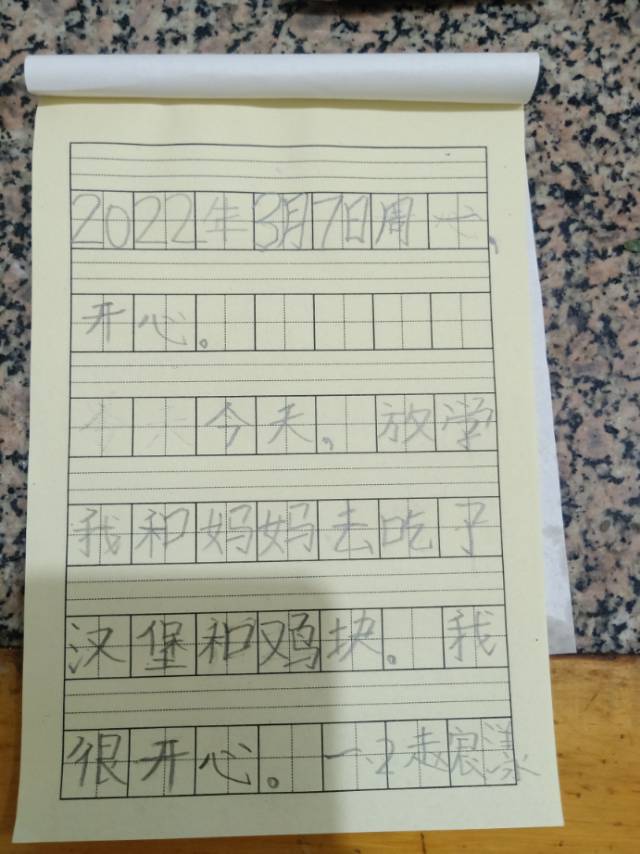 2022年3月7日周一、
开心。
今天，放学
我和妈妈去吃了
汉堡和鸡块。我
很开心。一.2赵宸漾